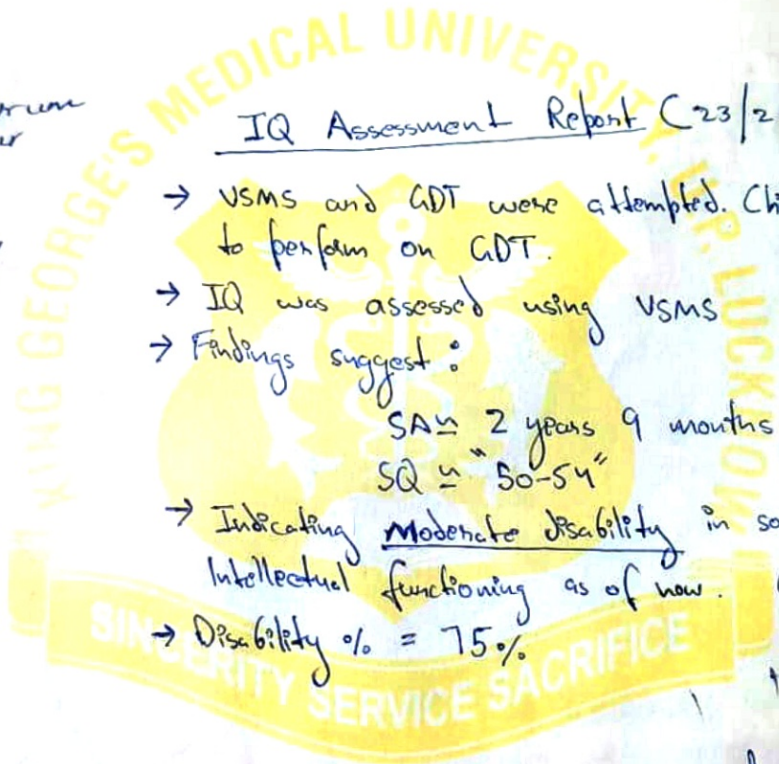 KING GEORGE'S MEDICAL UNIVERSITY, U.P. LUCKNOW
IQ Assessment Report (23/2
→ VSMS and GDT were attempted. Chi
to perform on GDT.
→ IQ was assessed using VSMS
→ Findings suggest :
SA ≃ 2 years 9 months
SQ ≃ "50-54"
→ Indicating Moderate disability in so
Intellectual functioning as of now.
→ Disability % = 75%
SINCERITY SERVICE SACRIFICE